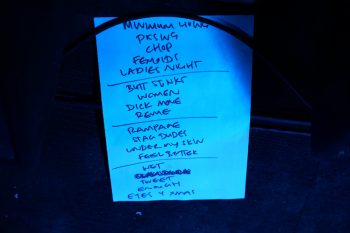 MINIMUM LIVING
PKSWG
CHOP
FEMOIDS
LADIES NIGHT
BUTT STINKS
WOMEN
DICK MOVE
REVVE
RAMPAGE
STAG DUDES
UNDER MY SKIN
FEEL BETTER
WET
TWEET
ENOUGH
EYES 4 XMAS